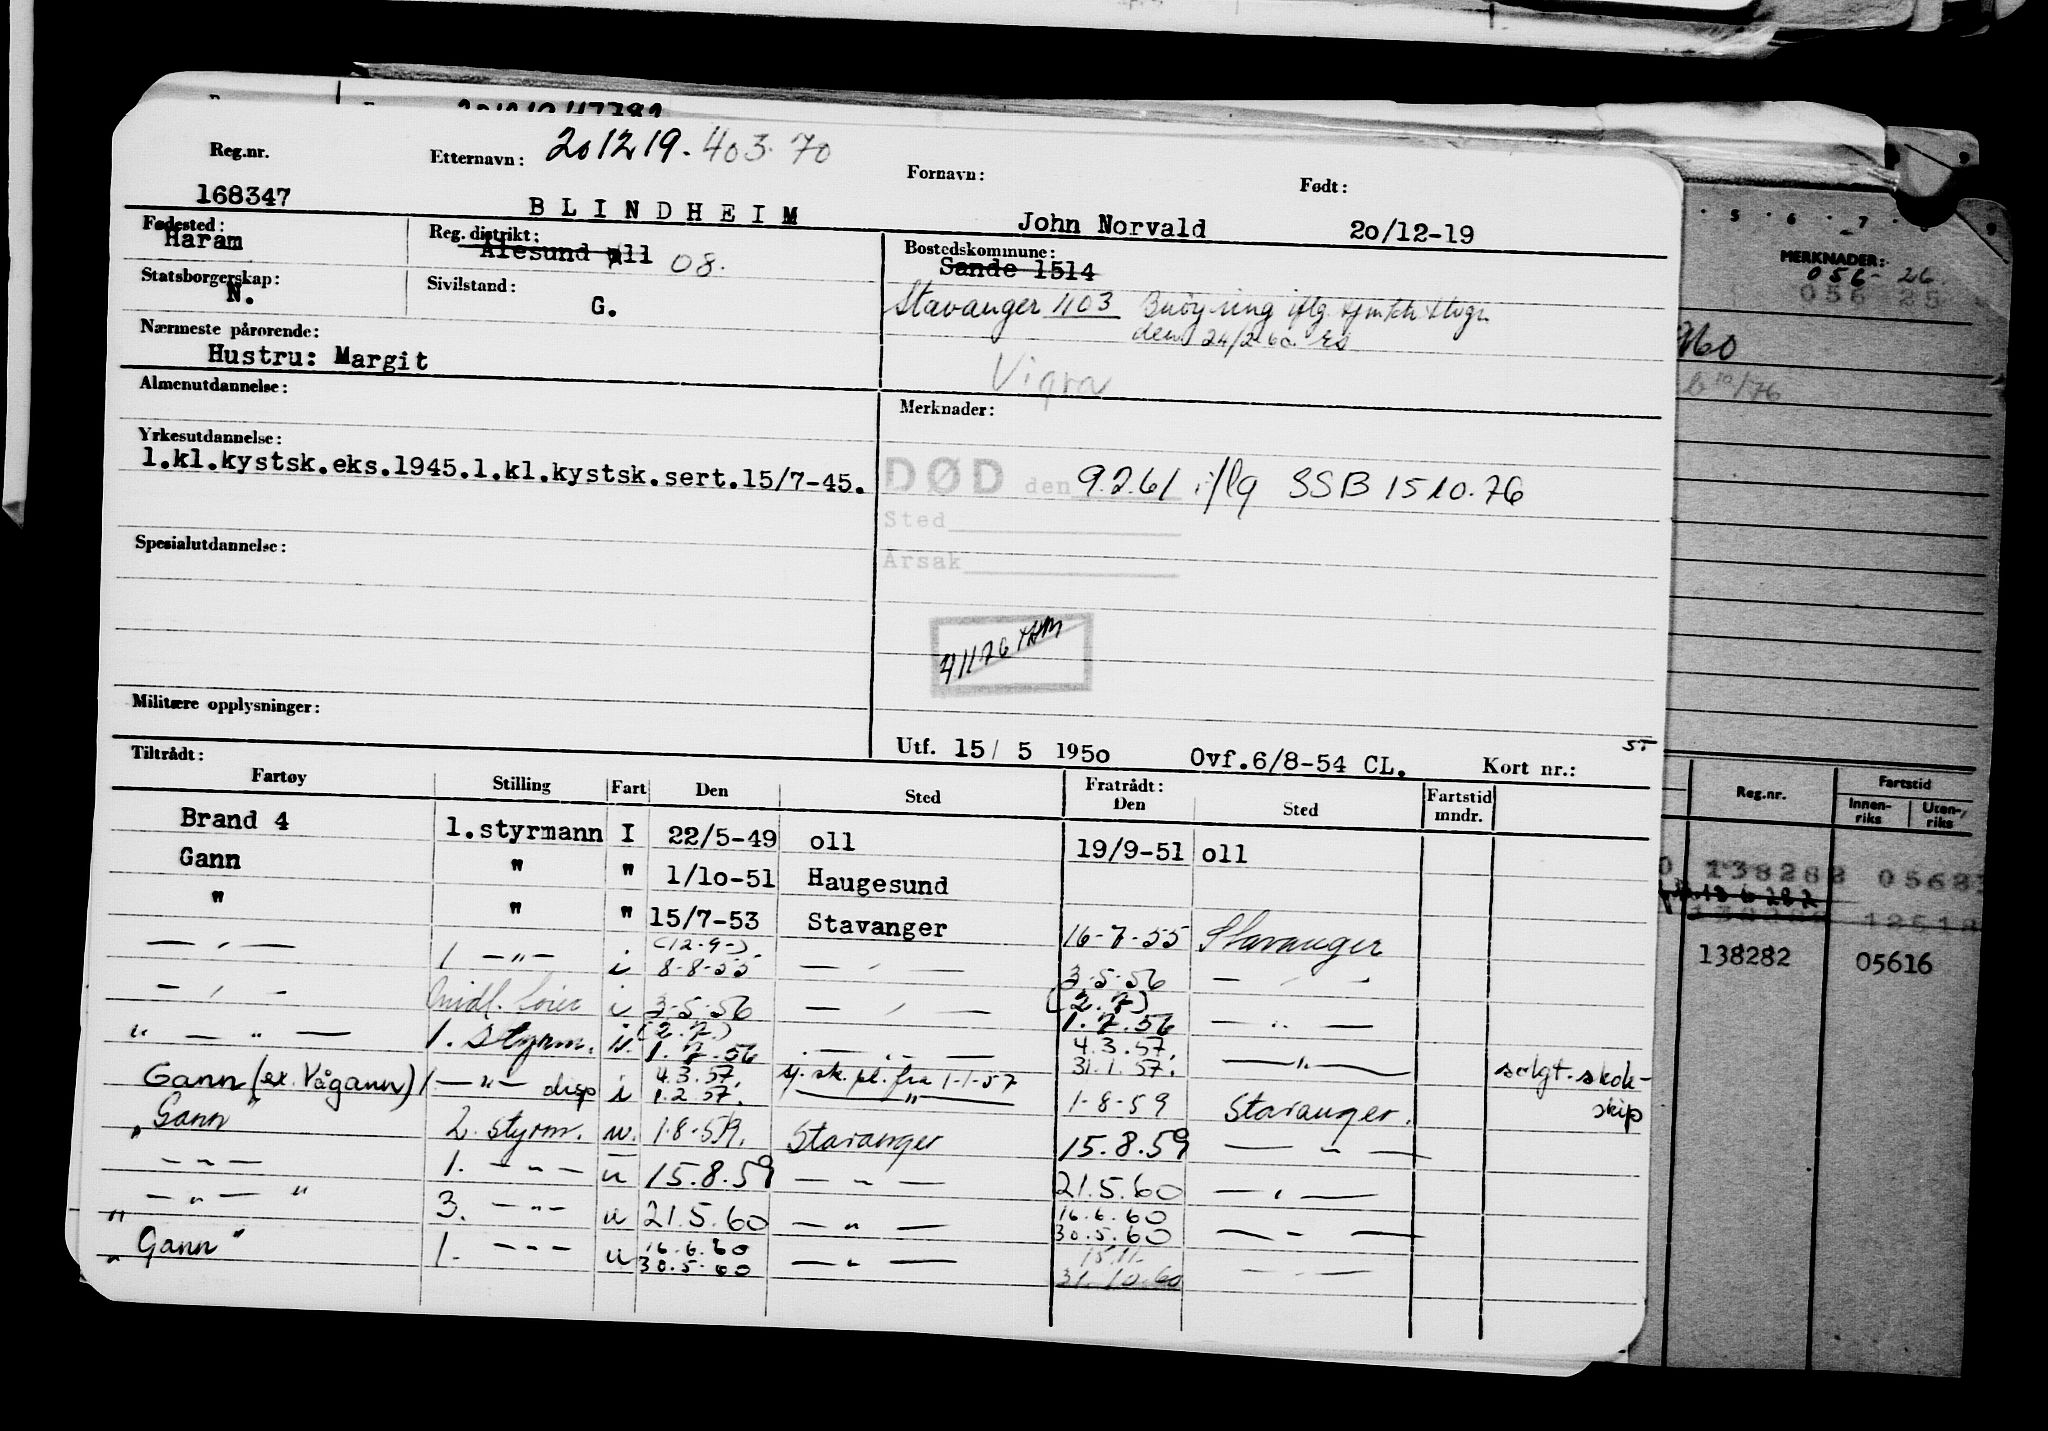 Reg.nr. Etternavn: 201219.403.70 Fornavn: Født:
168347 BLINDHEIM John Norvald 20/12-19
Fødested: Haram
Reg. distrikt: Ålesund 011 08.
Bostedskommune: Sande 1514
Statsborgerskap: N.
Sivilstand: G.
Stavanger 1103 iflg.
den 24/2-60
Nærmeste pårørende:
Hustru: Margit
Vigra
Almenutdannelse:
Merknader:
Yrkesutdannelse:
1.kl.kystsk.eks.1945.1.kl.kystsk.sert.15/7-45.
DØD den 9.2.61 iflg SSB 1510.76
Sted
Årsak
Spesialutdannelse:
41176 THM
Militære opplysninger:
Utf. 15/ 5 1950 Ovf.6/8-54 CL. Kort nr.:
Tiltrådt: Fratrådt:
Fartøy Stilling Fart Den Sted Den Sted Fartstid mndr.
Brand 4 1.styrmann I 22/5-49 oll 19/9-51 oll
Gann " " 1/10-51 Haugesund
" " " 15/7-53 Stavanger 16-7-55 Stavanger
— " — 1 — " — i (12-9-) 8-8-55 — " — 3-5-56 — " —
— " — i 3-5-56 — " — (2.7) 1.7.56 — " —
" — " — 1. styrm. (2.7.) 1.7.56 — " — 4.3.57. 31.1.57. — " — solgt. skole-
Gann (ex. Vågann) 1 — " — disp i 4.3.57. 1.2.57. sj. sk. pl. fra 1-1-57 — " — 1-8-59 Stavanger. skip
"Gann" 2. styrm. u. 1.8.59. Stavanger 15.8.59 — " —
— " — 1. — " — u 15.8.59 — " — 21.5.60 — " —
" — " — " 3. — " — u 21.5.60 — " — 16.6.60 30.5.60 — " —
"Gann" 1. — " — u 16.6.60 30.5.60 — " — 15.11. 31.10.60 — " —
5 6 7 8 9
MERKNADER:
056- 26
056 25
Reg.nr. Fartstid
Innenriks Utenriks
138282
138282 05616